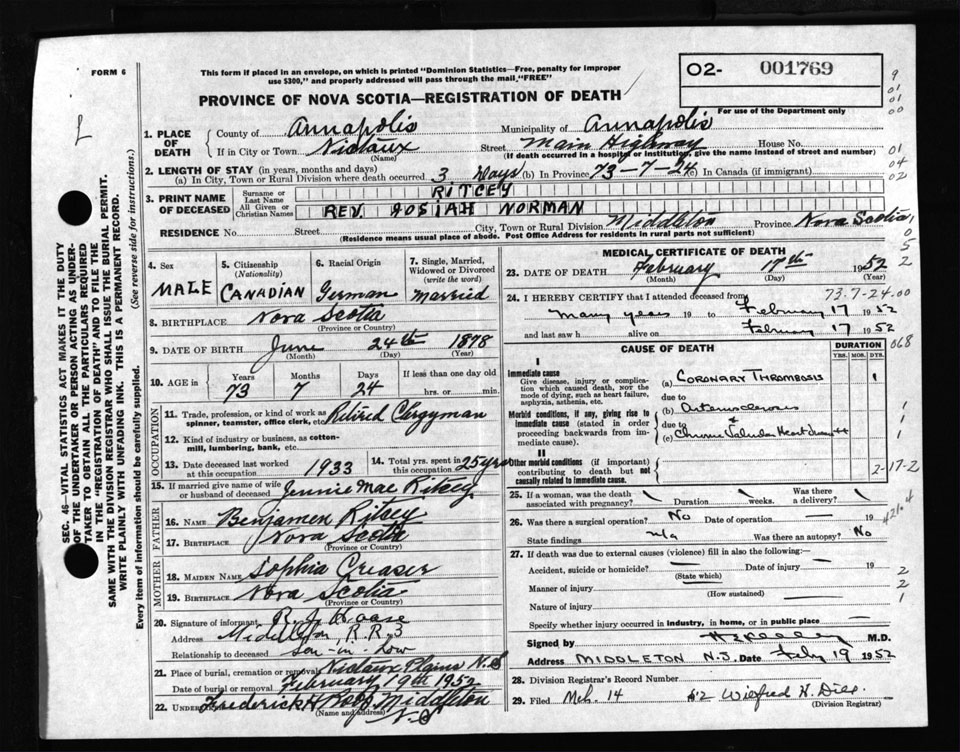 FORM 6
This form if placed in an envelope, on which is printed "Dominion Statistics—Free, penalty for improper
use $300," and properly addressed will pass through the mail, "FREE"
02- 001769
For use of the Department only
PROVINCE OF NOVA SCOTIA—REGISTRATION OF DEATH
1. PLACE OF DEATH
County of Annapolis Municipality of Annapolis
If in City or Town Nictaux Street Main Highway House No.
(Name) (If death occurred in a hospital or institution, give the name instead of street and number)
2. LENGTH OF STAY (in years, months and days)
(a) In City, Town or Rural Division where death occurred 3 Days (b) In Province 73-7-24 (c) In Canada (if immigrant)
3. PRINT NAME OF DECEASED
Surname or Last Name RITCEY
All Given or Christian Names REV. JOSIAH NORMAN
RESIDENCE No. Street City, Town or Rural Division Middleton Province Nova Scotia
(Residence means usual place of abode. Post Office Address for residents in rural parts not sufficient)
4. Sex MALE
5. Citizenship (Nationality) CANADIAN
6. Racial Origin German
7. Single, Married, Widowed or Divorced (write the word) Married
8. BIRTHPLACE Nova Scotia
(Province or Country)
9. DATE OF BIRTH June 24th 1878
(Month) (Day) (Year)
10. AGE in Years Months Days If less than one day
73 7 24 hrs. or min.
OCCUPATION
11. Trade, profession, or kind of work as spinner, teamster, office clerk, etc. Retired Clergyman
12. Kind of industry or business, as cotton-mill, lumbering, bank, etc.
13. Date deceased last worked at this occupation 1933
14. Total yrs. spent in this occupation 25 yrs
15. If married give name of wife or husband of deceased Jennie Mae Ritcey
FATHER
16. NAME Benjamen Ritcey
17. BIRTHPLACE Nova Scotia
(Province or Country)
MOTHER
18. MAIDEN NAME Sophia Creaser
19. BIRTHPLACE Nova Scotia
(Province or Country)
20. Signature of informant
Address Middleton R.R.3
Relationship to deceased Son-in-Law
21. Place of burial, cremation or removal Nictaux Plains N.S
Date of burial or removal February, 19th 1952
22. UNDERTAKER Frederick H. Middleton
(Name and address) N.S
MEDICAL CERTIFICATE OF DEATH
23. DATE OF DEATH February 17th 1952
(Month) (Day)
73.7-24.00
24. I HEREBY CERTIFY that I attended deceased from
many years 19 to February 17 1952
and last saw h alive on February 17 1952
CAUSE OF DEATH
DURATION
YRS. MOS. DYS.
I
Immediate cause
Give disease, injury or complication which caused death, not the mode of dying, such as heart failure, asphyxia, asthenia, etc.
(a) CORONARY THROMBOSIS 1
due to
Morbid conditions, if any, giving rise to immediate cause (stated in order proceeding backwards from immediate cause)
(b) Arteriosclerosis
due to &
(c) Chronic Valvular Heart
II
Other morbid conditions (if important) contributing to death but not causally related to immediate cause.
2-17-2
25. If a woman, was the death associated with pregnancy? Duration weeks. Was there a delivery?
26. Was there a surgical operation? No Date of operation — 19
State findings n/a Was there an autopsy? No
27. If death was due to external causes (violence) fill in also the following:—
Accident, suicide or homicide? Date of injury 19
(State which)
Manner of injury
(How sustained)
Nature of injury
Specify whether injury occurred in industry, in home, or in public place
Signed by M.D.
Address MIDDLETON N.S. Date Feby 19 1952
28. Division Registrar's Record Number
29. Filed Mch. 14 52 Wilfred H.
(Division Registrar)
SEC. 46—VITAL STATISTICS ACT MAKES IT THE DUTY
OF THE UNDERTAKER OR PERSON ACTING AS UNDER-
TAKER TO OBTAIN ALL THE PARTICULARS REQUIRED
IN THE "REGISTRATION OF DEATH" AND TO FILE THE
SAME WITH THE DIVISION REGISTRAR WHO SHALL ISSUE THE BURIAL PERMIT.
WRITE PLAINLY WITH UNFADING INK. THIS IS A PERMANENT RECORD.
Every item of information should be carefully supplied. (See reverse side for instructions.)